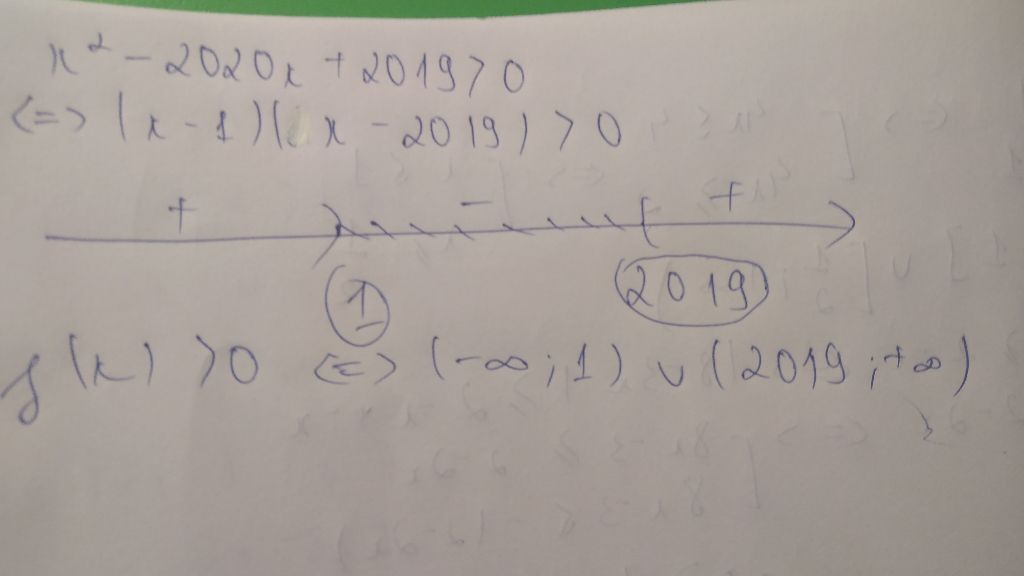 x² - 2020x + 2019 > 0
<=> (x - 1)(x - 2019) > 0
+ - +
1 2019
f(x) > 0 <=> (-∞; 1) ∪ (2019; +∞)